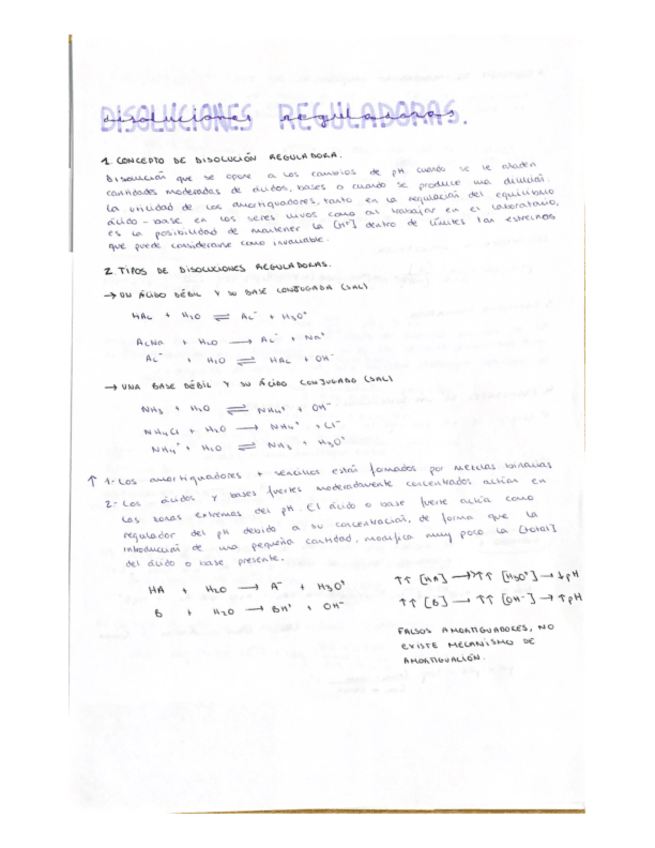 DISOLUCIONES REGULADORAS.
disoluciones reguladoras
1. CONCEPTO DE DISOLUCIÓN REGULADORA.
Disolución que se opone a los cambios de pH cuando se le añaden
cantidades moderadas de ácidos, bases o cuando se produce una dilución.
La utilidad de los amortiguadores, tanto en la regulación del equilibrio
ácido-base en los seres vivos como al trabajar en el laboratorio,
es la posibilidad de mantener la [H+] dentro de límites tan estrechos
que puede considerarse como invariable.
2. TIPOS DE DISOLUCIONES REGULADORAS.
→ UN ÁCIDO DÉBIL Y SU BASE CONJUGADA (SAL)
HAc + H2O ⇌ Ac⁻ + H3O⁺
AcNa + H2O → Ac⁻ + Na⁺
Ac⁻ + H2O ⇌ HAc + OH⁻
→ UNA BASE DÉBIL Y SU ÁCIDO CONJUGADO (SAL)
NH3 + H2O ⇌ NH4⁺ + OH⁻
NH4Cl + H2O → NH4⁺ + Cl⁻
NH4⁺ + H2O ⇌ NH3 + H3O⁺
↑ 1- Los amortiguadores + sencillos están formados por mezclas binarias
2- Los ácidos y bases fuertes moderadamente concentrados actúan en
las zonas extremas del pH. El ácido o base fuerte actúa como
regulador del pH debido a su concentración, de forma que la
introducción de una pequeña cantidad, modifica muy poco la [total]
del ácido o base presente.
HA + H2O → A⁻ + H3O⁺
B + H2O → BH⁺ + OH⁻
↑↑ [HA] → ↑↑ [H3O⁺] → ↓pH
↑↑ [B] → ↑↑ [OH⁻] → ↑pH
FALSOS AMORTIGUADORES, NO
EXISTE MECANISMO DE
AMORTIGUACIÓN.